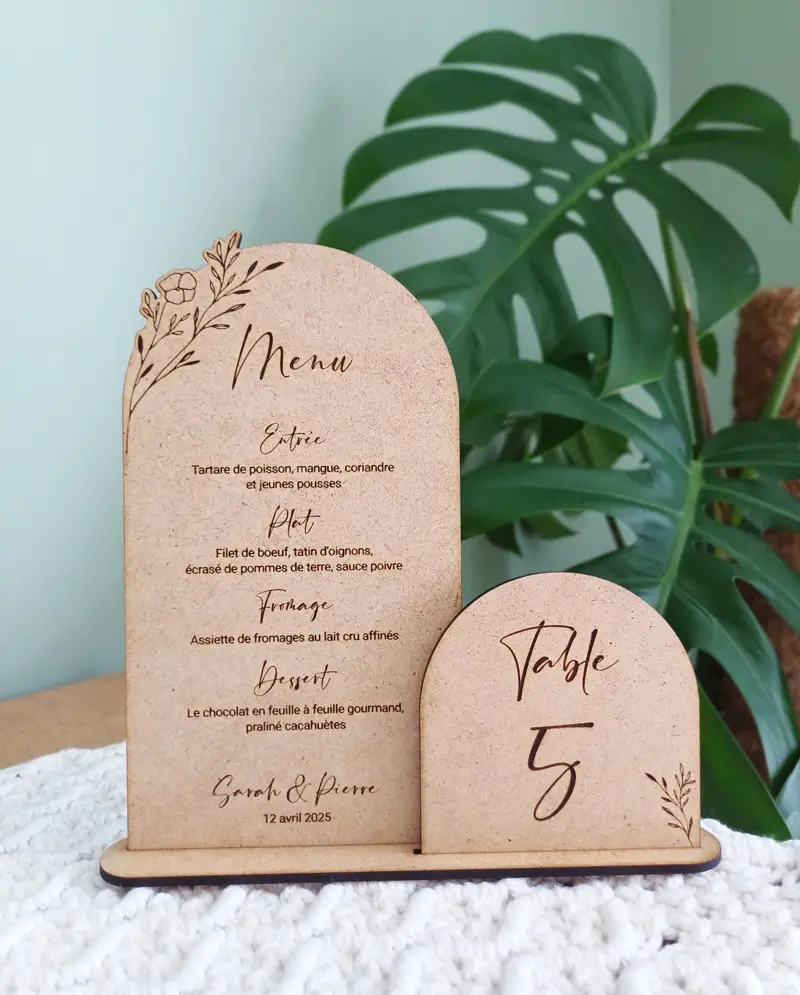 Menu
Entrée
Tartare de poisson, mangue, coriandre
et jeunes pousses
Plat
Filet de boeuf, tatin d'oignons,
écrasé de pommes de terre, sauce poivre
Fromage
Assiette de fromages au lait cru affinés
Dessert
Le chocolat en feuille à feuille gourmand,
praliné cacahuètes
Sarah & Pierre
12 avril 2025
Table
5